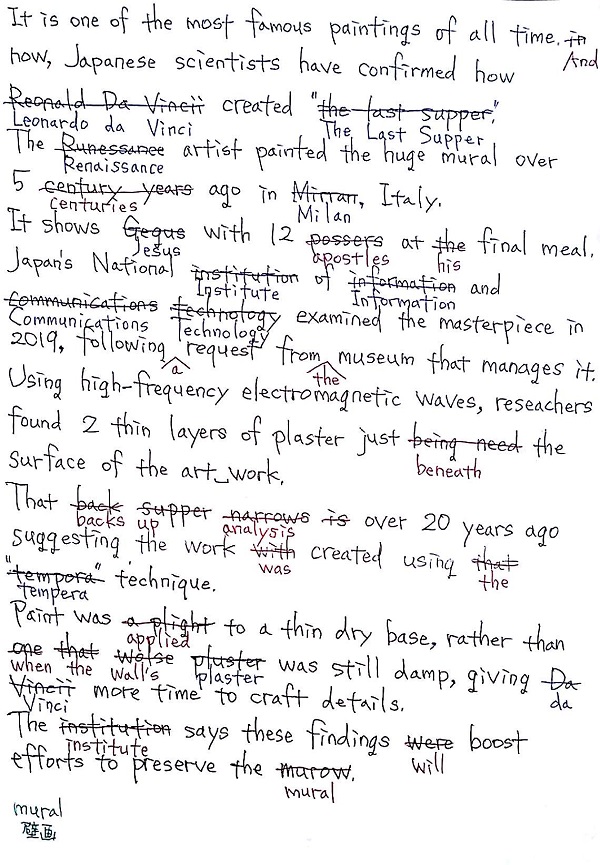 It is one of the most famous paintings of all time. in
And
how, Japanese scientists have confirmed how
Reonald Da Vincii created "the last supper".
Leonardo da Vinci The Last Supper
The Runessance artist painted the huge mural over
Renaissance
5 century years ago in Mirran, Italy.
centuries Milan
It shows Gegus with 12 possers at the final meal.
Jesus apostles his
Japan's National institution of information and
Institute Information
communications technology examined the masterpiece in
Communications Technology
2019, following request from museum that manages it.
a the
Using high-frequency electromagnetic waves, reseachers
found 2 thin layers of plaster just being need the
beneath
surface of the art_work.
That back supper narrows is over 20 years ago
backs up analysis
suggesting the work with created using that
was the
"tempora" technique.
tempera
Paint was a plight to a thin dry base, rather than
applied
one that walse pluster was still damp, giving Da
when the wall's plaster da
Vincii more time to craft details.
Vinci
The institution says these findings were boost
institute will
efforts to preserve the marow.
mural
mural
壁画